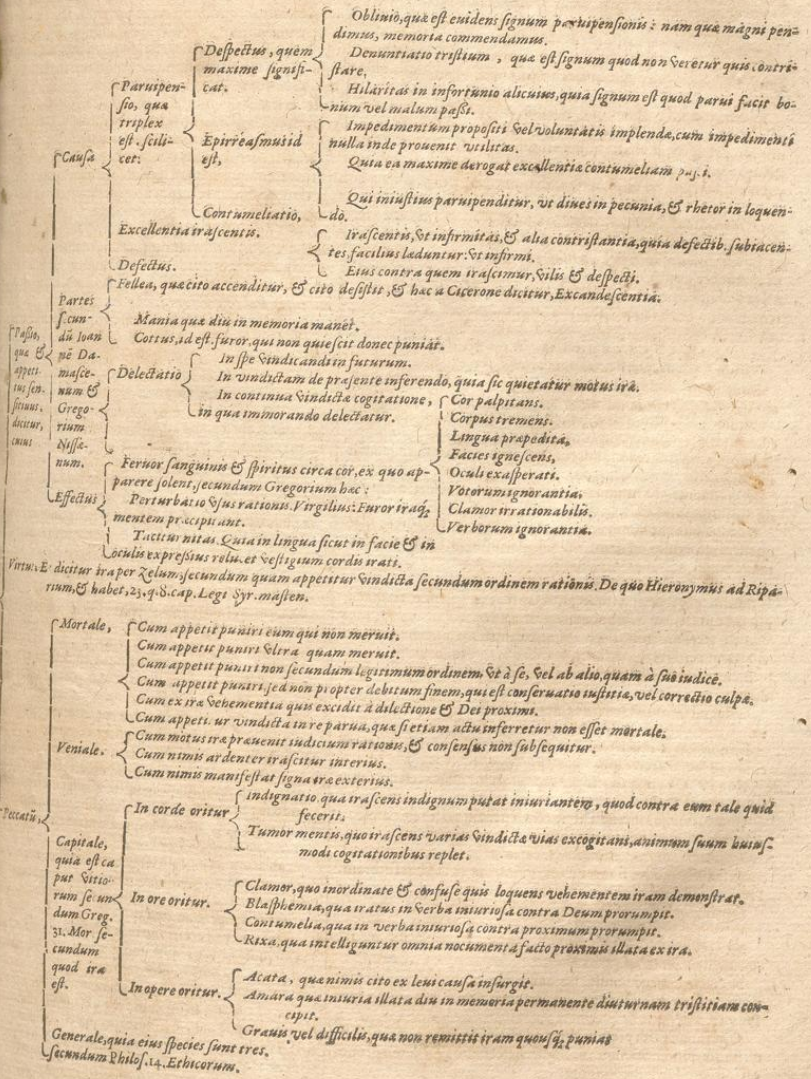 Obliuio, quæ est euidens signum paruipensionis: nam quæ magni pen-
dimus, memoria commendamus.
Despectus, quem
maxime signifi-
cat.
Denuntiatio tristium, quæ est signum quod non veretur quis contri-
stare.
Hilaritas in infortunio alicuius, quia signum est quod parui facit bo-
num vel malum passi.
Paruipen-
sio, quæ
triplex
est. scili-
cet:
Epirreasmus id
est,
Impedimentum propositi vel voluntatis implendæ, cum impedimenti
nulla inde prouenit vtilitas.
Quia ea maxime derogat excellentiæ contumeliam
Causa
Contumeliatio,
Qui iniustius paruipenditur, vt diues in pecunia, & rhetor in loquen-
do.
Excellentia irascentis.
Defectus.
Irascentis, vt infirmitas, & alia contristantia, quia defectib. subiacen-
tes, facilius læduntur: vt infirmi.
Eius contra quem irascimur, vilis & despecti.
Passio,
quæ &
appeti-
tus sen-
sitiuus,
dicitur,
cuius
Partes
secun-
dũ Ioan
nẽ Da-
masce-
num &
Grego-
rium
Nissæ-
num.
Fellea, quæ cito accenditur, & cito desistit, & hac a Cicerone dicitur, Excandescentia.
Mania quæ diu in memoria manet.
Cottus, id est, furor, qui non quiescit donec puniat.
Delectatio
In spe vindicandi in futurum.
In vindictam de præsente inferendo, quia sic quietatur motus iræ.
In continua vindictæ cogitatione,
in qua immorando delectatur.
Effectus
Feruor sanguinis & spiritus circa cor, ex quo ap-
parere solent, secundum Gregorium hæc:
Cor palpitans.
Corpus tremens.
Lingua præpedita.
Facies ignescens,
Oculi exasperati.
Votorum ignorantia.
Clamor irrationabilis.
Verborum ignorantia.
Perturbatio vsus rationis. Virgilius: Furor iraq;
mentem præcipitant.
Taciturnitas. Quia in lingua sicut in facie & in
oculis expressius relucet vestigium cordis irati.
dicitur ira per Zelum, secundum quam appetitur vindicta secundum ordinem rationis. De quo Hieronymus ad Ripa-
rium, & habet, 23. q. 8. cap. Legi Syr. masten.
Peccatũ,
Mortale,
Cum appetit puniri eum qui non meruit.
Cum appetit puniri vltra quam meruit.
Cum appetit puniri non secundum legitimum ordinem, vt à se, vel ab alio, quam à suo iudice.
Cum appetit puniri, sed non propter debitum finem, qui est conseruatio iustitiæ, vel correctio culpæ.
Cum ex iræ vehementia quis excidit à dilectione & Dei proximi.
Cum appetitur vindicta in re parua, quæ si etiam actu inferretur non esset mortale.
Veniale.
Cum motus iræ præuenit iudicium rationis, & consensus non subsequitur.
Cum nimis ardenter irascitur interius.
Cum nimis manifestat signa iræ exterius.
Capitale,
quia est ca
put vitio-
rum secun
dum Greg.
31. Mor se-
cundum
quod ira
est.
In corde oritur
Indignatio qua irascens indignum putat iniuriantem, quod contra eum tale quid
fecerit.
Tumor mentis, quo irascens varias vindictæ vias excogitans, animum suum huius-
modi cogitationibus replet.
In ore oritur.
Clamor, quo inordinate & confuse quis loquens vehementem iram demonstrat.
Blasphemia, qua iratus in verba iniuriosa contra Deum prorumpit.
Contumelia, qua in verba iniuriosa contra proximum prorumpit.
In opere oritur.
Rixa, qua intelliguntur omnia nocumenta facto proximis illata ex ira.
Generale, quia eius species sunt tres.
secundum Philos. 14. Ethicorum.
Acata, quæ nimis cito ex leui causa insurgit.
Amara quæ iniuria illata diu in memoria permanente diuturnam tristitiam con-
cipit.
Grauis vel difficilis, quæ non remittit iram quousq; puniat